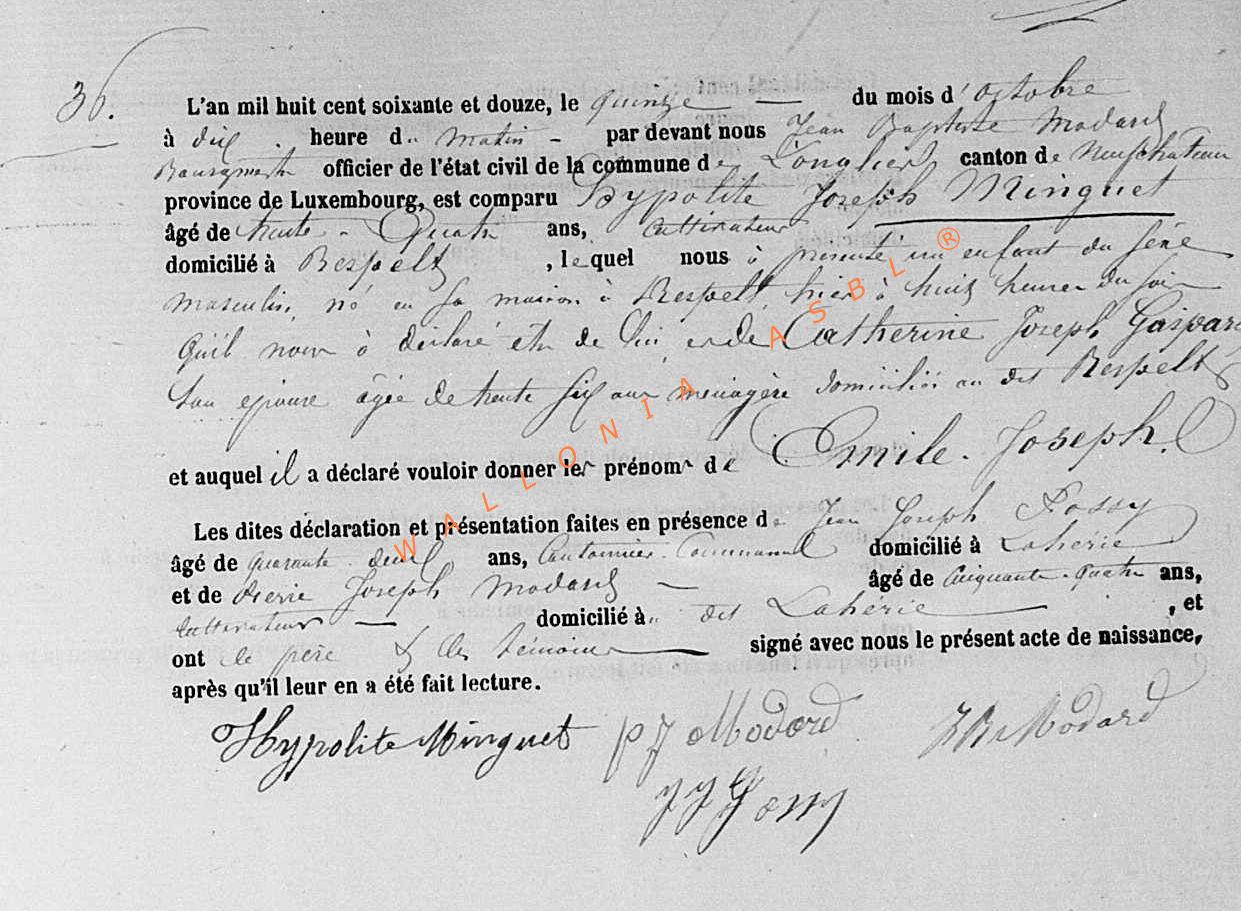 36.
L'an mil huit cent soixante et douze, le quinze — du mois d'octobre
à dix heure du matin - par devant nous Jean Baptiste Modard
Bourgmestre officier de l'état civil de la commune de Longlier, canton de Neufchateau
province de Luxembourg, est comparu Hypolite Joseph Minguet
âgé de trente-Quatre ans, Cultivateur
domicilié à Respelt , lequel nous à présenté un enfant du séxe
masculin, né en sa maison à Respelt, hier à huit heures du soir
qu'il nous à déclaré etre de lui, et de Catherine Joseph Gaspard
son épouse âgée de trente six ans menagère domiciliés au dit Respelt
et auquel il a déclaré vouloir donner les prénoms de Emile-Joseph.
Les dites déclaration et présentation faites en présence de Jean Joseph
âgé de quarante-deux ans, Cantonnier Communal domicilié à Laherie
et de Pierre Joseph Modard — âgé de Cinquante-quatre ans,
Cultivateur — domicilié à dit Lahérie — , et
ont le père & les témoins — signé avec nous le présent acte de naissance,
après qu'il leur en a été fait lecture.
Hypolite Minguet PJ Modard JB Modard
JJ
WALLONIA ASBL ®